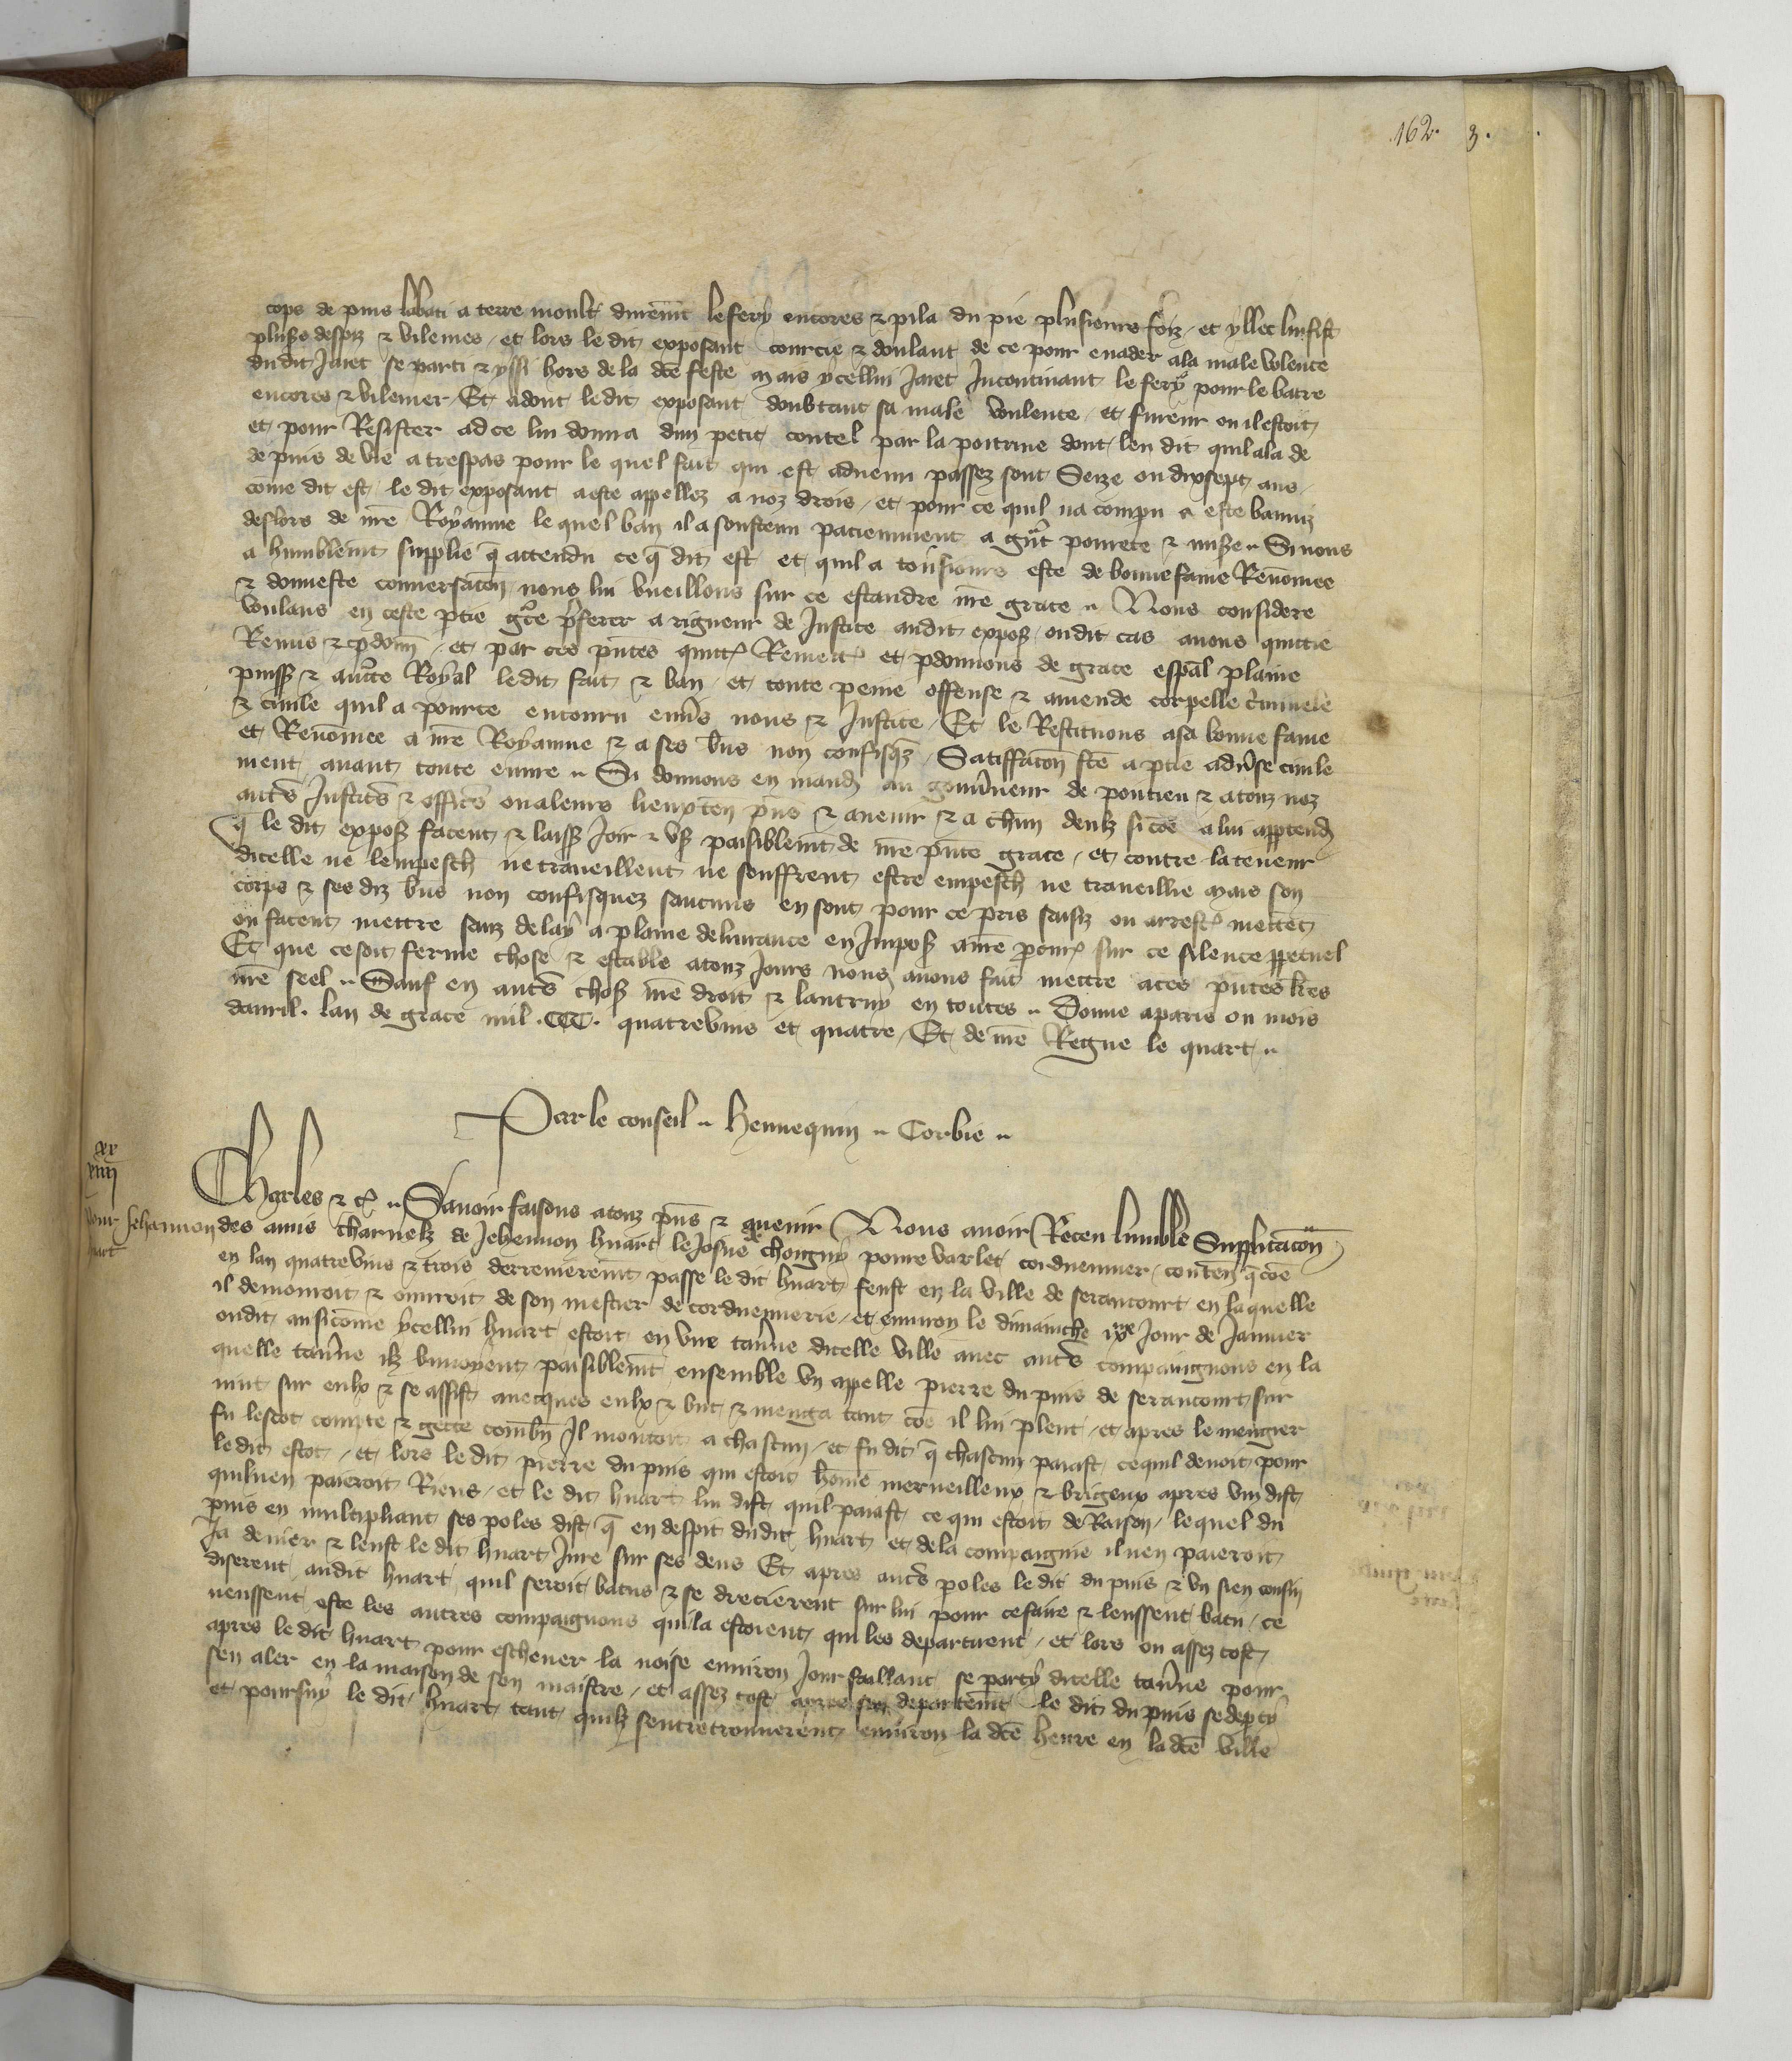 162. 3.
cops de puis labati a terre moult duremt le fery encores & pila du pie plusieurs foiz / et yllec lui fist
plus̃s despiz & vilenies / et lors ledit exposant courcie & doulant de ce pour evader a la male volence
dudit Jaiet se parti & yssi hors de la dce feste mais ycellui Jaiet Incontinant le fery pour le batre
encores & vilener / Et adont ledit exposant doubtant sa male voulente / et fureur ou il estoit
et pour Resister ad ce lui donna dun petit coutel par la poitrine dont len dit quil ala de
depuis de vie a trespas pour le quel fait qui est advenu passez sont Seize ou dixsept ans /
come dit est le dit exposant a este appellez a noz drois / et pour ce quil na compu a este banniz
deslors de nre Royaume le quel ban il a soustenu paciemment a gñt povrete & mise .. Si nous
a humblemt supplie q̃ attendu ce q̃ dit est et quil a tousiours este de bonne fame Renommee
& honneste conversacon nous lui vueillons sur ce estandre nre grace .. Nous considere
voulans en ceste ptie gce pferer a rigueur de Justice audit expos̃ / ou dit cas avons quitte
Remis & pdonne / et par ces pntes quitt̃ Remett̃ et pdonnons de grace espal plaine
puiss̃ & aucte Royal ledit fait & ban / et toute peine offense & amende corpelle criminele
& civile quil a pource encouru envs nous & Justice / Et le Restituons a sa bonne fame
et Renommee a nre Royaume & a ses bns non confisq̃z / Satiffacon fce a ptie adverse civile
ment avant toute euvre .. Si donnons en mand̃ au gouvneur de pontieu & a touz noz
autrs Justicrs & officrs ou a leurs lieuxten pns & avenir & a chun deulx si coe a lui apptend̃
q̃ le dit expos̃ facent & laiss̃ Joir & us̃ paisiblemt de nre pnte grace / et contre la teneur
dicelle ne lempesch̃ ne traveillent ne seuffrent estre empesch̃ ne traveillie mais son
corps & ses diz bns non confisquez saucuns en sont pour ce pris saisiz ou arrest̃ mettent
ou facent mettre sanz delay a plaine delivrance en Impos̃ a nre pcur̃ sur ce silence ppetuel
Et que ce soit ferme chose & estable a touz Jours nous avons fait mettre a ces pntes lres
nre seel .. Sauf en autrs chos̃ nre droit & lautruy en toutes .. Donne a paris ou mois
davril . lan de grace mil .CCC. quatrevins et quatre / Et de nre Regne le quart ..
Par le conseil .. hennequin .. Corbie ..
xx
viiii
pour Jehannon
huart
Charles & c̃ .. Savoir faisons a touz pns & avenir Nous avoir Receu lumble Supplicacon
des amis charnelz de Jehennon huart le Josne chongny povre varlet corduennier / conten q̃ coe
en lan quatrevins & trois derrenieremt passe le dit huart feust en la ville de serancourt en laquelle
il demouroit & ouvroit de son mestier de cordvennerie / et environ le dimainche ixe Jour de Janvier
oudit an sicomme ycellui huart estoit en une tavne dicelle ville avec autrs compaingnons en la
quelle tavne ilz buvoyent paisiblemt ensemble un appelle pierre du puis de serancourt sur
vint sur eulx & se assist avecques eulx & but & menga tant coe il lui pleut / et apres le mengier
fu lescot compte & gette combn Il montoit a chascun / et fu dit q̃ chascun paiast ce quil devoit pour
ledit escot / et lors le dit pierre du puis qui estoit homme merveilleux & brigeux apres vin dist
quil nen paieroit Riens / et le dit huart lui dist quil paiast ce qui estoit de Raison / lequel du
puis en multipliant ses poles dist q̃ en despit dudit huart et de la compaignie il nen paieroit
Ja denier & leust le dit huart Jure sur ses dens Et apres autrs poles le dit du puis & un sien cousin
diserent audit huart quil seroit batus & se drecierent sur lui pour ce faire & leussent batu / ce
neussent este les autres compaignons qui la estoient qui les departirent / et lors ou assez tost
apres le dit huart pour eschever la noise environ Jour faillant se party dicelle tavne pour
sen aler en la maison de son maistre / et assez tost apres son departemt le dit du puis se depty
et poursuy le dit huart tant quilz sentretrouverent environ la dce heure en la dce ville